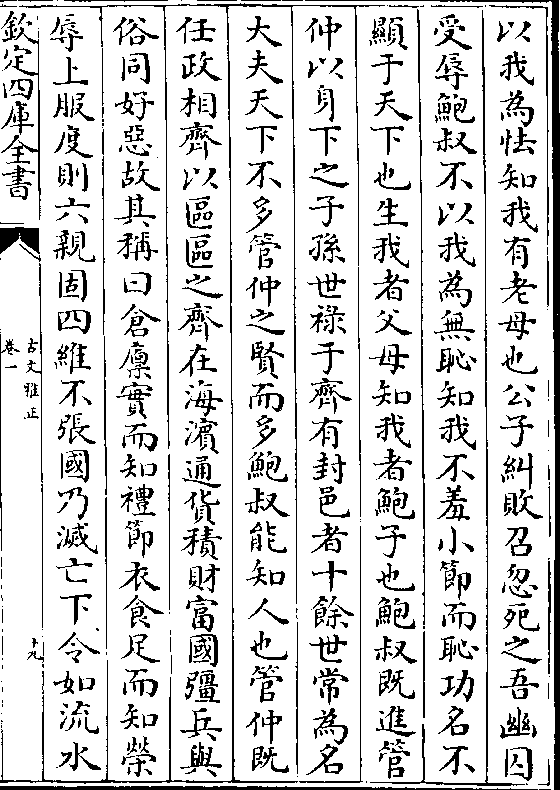 以我為怯知我有老母也公子糾敗召忽死之吾幽囚
受辱鮑叔不以我為無恥知我不羞小節而恥功名不
顯于天下也生我者父母知我者鮑子也鮑叔既進管
仲以身下之子孫世祿于齊有封邑者十餘世常為名
大夫天下不多管仲之賢而多鮑叔能知人也管仲既
任政相齊以區區之齊在海濱通貨積財富國彊兵與
俗同好惡故其稱曰倉廩實而知禮節衣食足而知榮
辱上服度則六親固四維不張國乃滅亡下令如流水
欽定四庫全書
古文雅正
卷一
十九